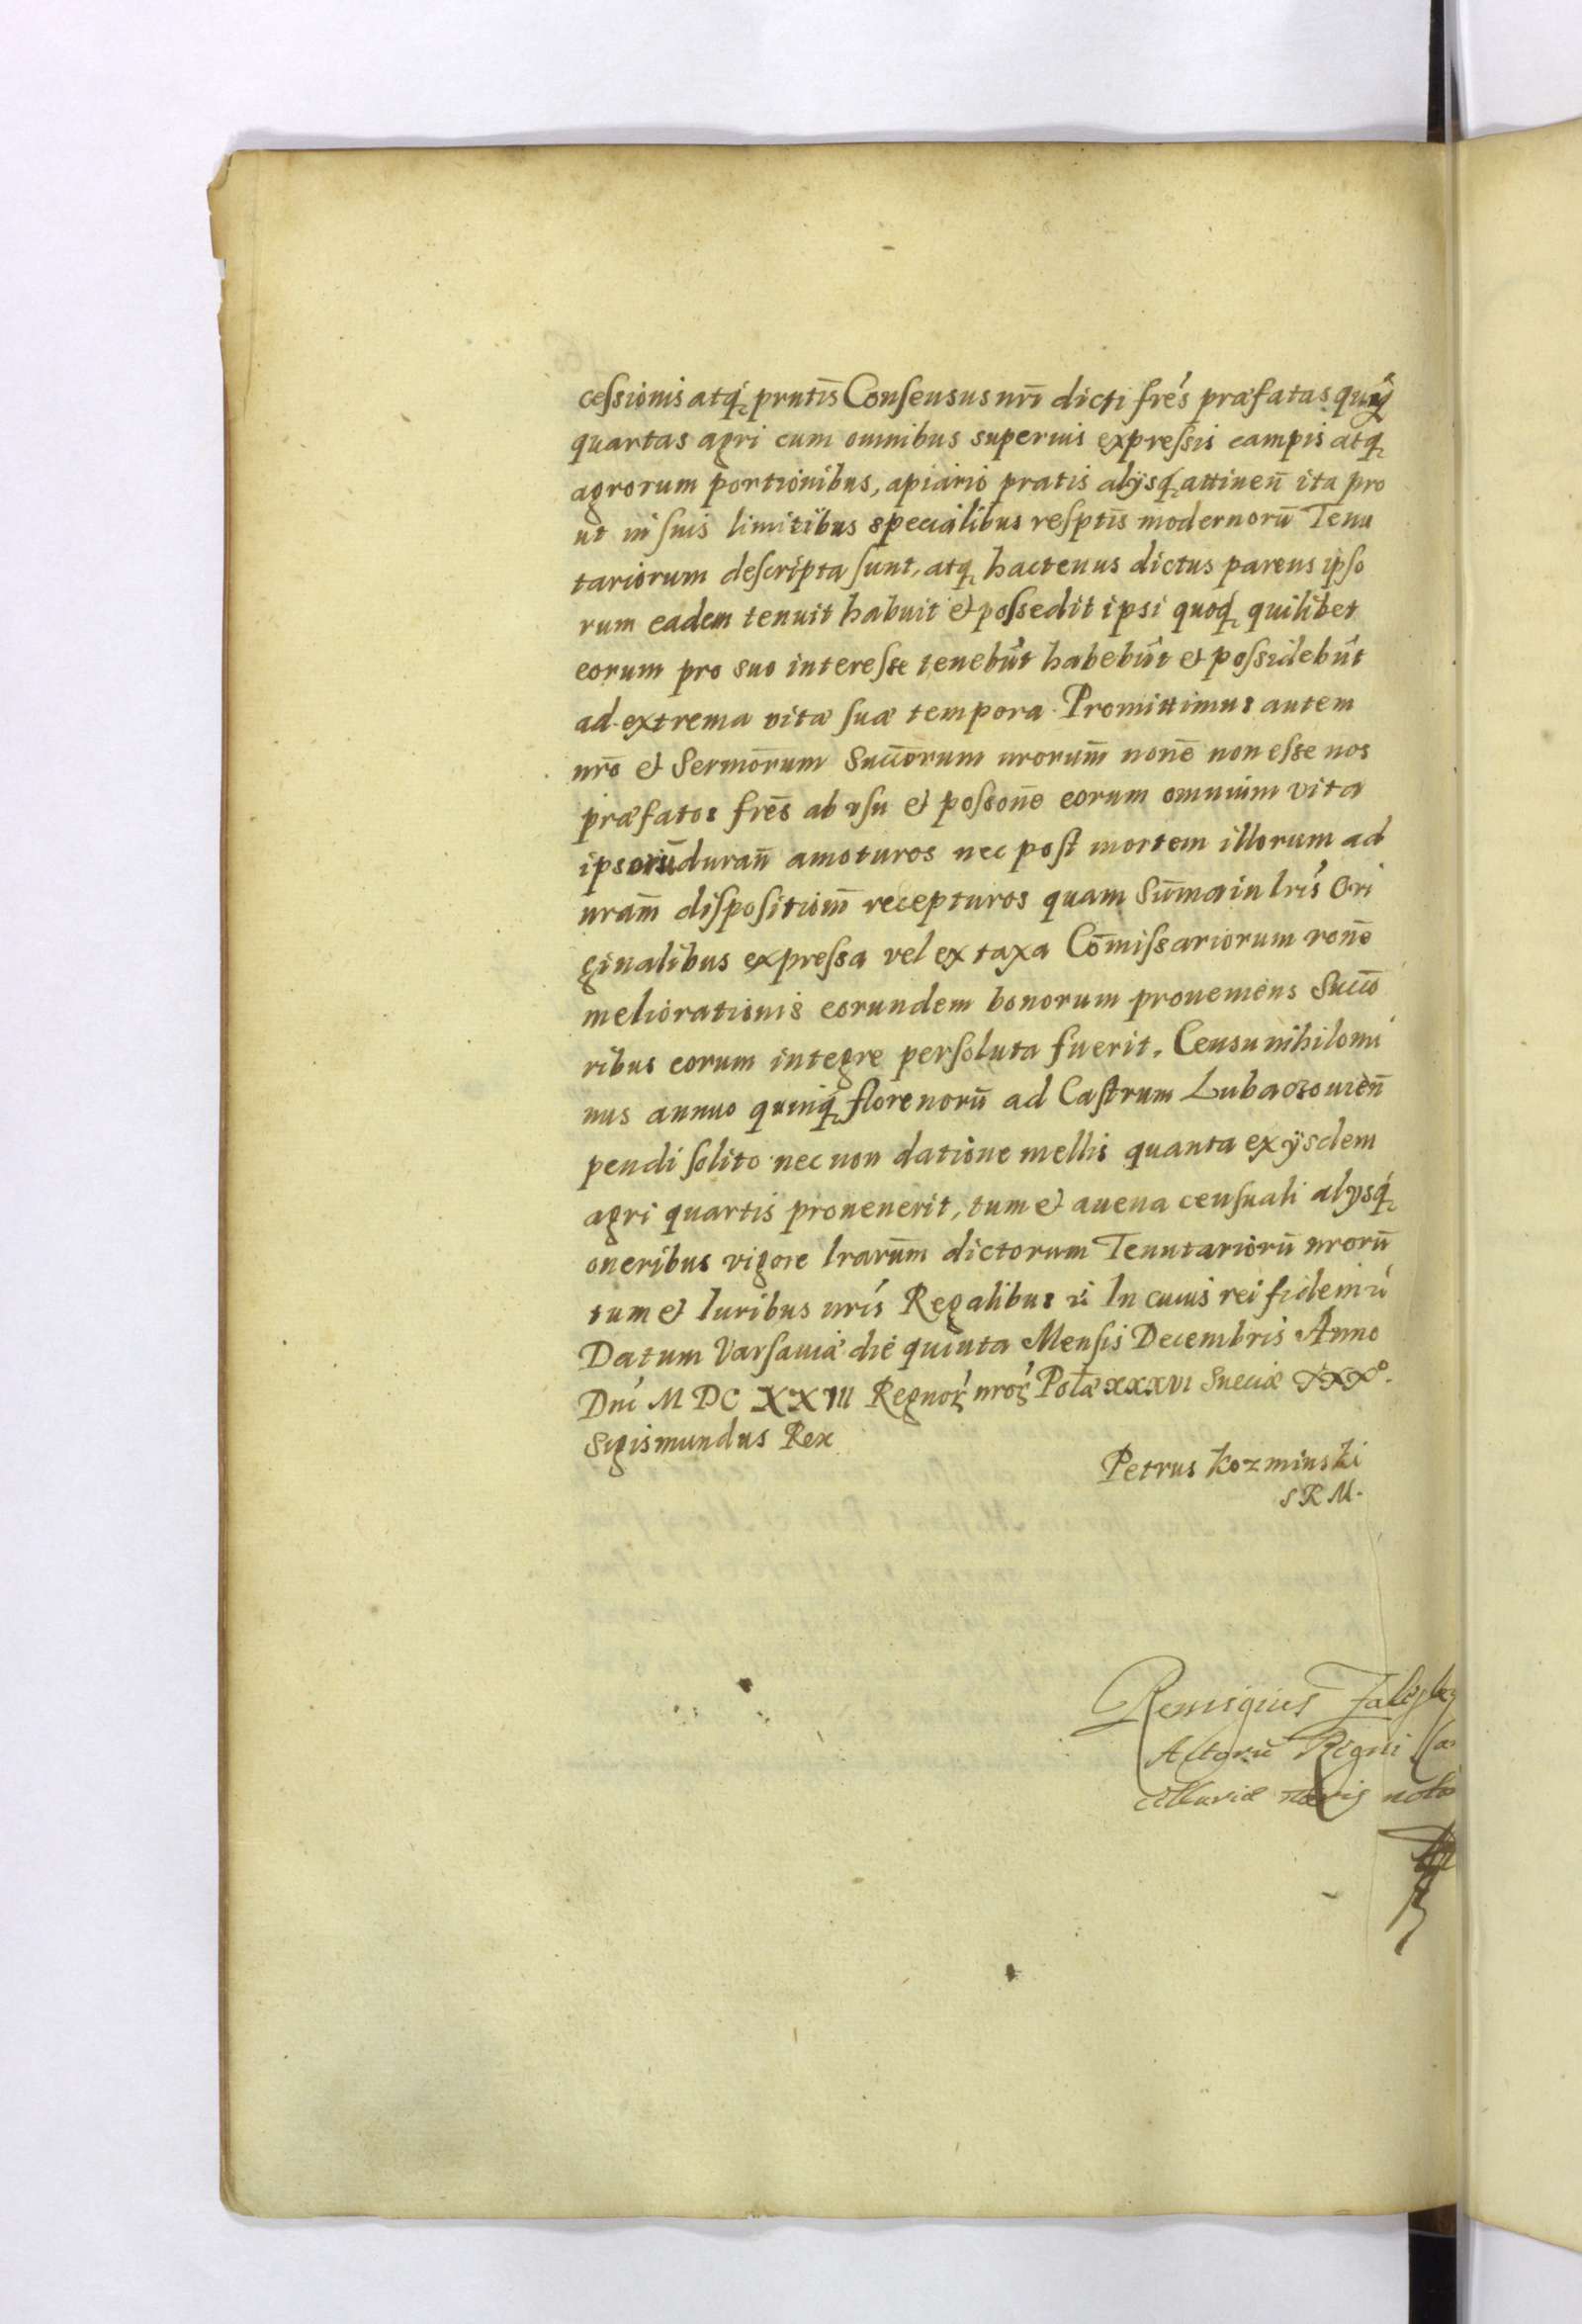 cessionis atq₃ prntis̄ Consensus nr̄i dicti fres præfatas quinq₃
quartas agri cum omnibus superius expressis campis atq₃
agrorum portionibus, apiario pratis alijsq₃ attinen̄ ita pro
ut in suis limitibus specialibus resptis̄ modernorū Tenu
tariorum descripta sunt, atq₃ hactenus dictus parens ipso
rum eadem tenuit habuit et possedit ipsi quoq₃ quilibet
eorum pro suo interesse tenebūt habebūt et possidebūt
ad extrema vitæ suæ tempora. Promittimus autem
nrō et Sermōrum Succōrum nrorum̄ nōne non esse nos
præfatos frēs ab vsu et possōne eorum omnium vita
ipsorū duran̄ amoturos nec post mortem illorum ad
nram̄ dispositiom̄ recepturos quam Sūma in lrīs Ori
ginalibus expressa vel ex taxa Cōmissariorum rōne
meliorationis eorundem bonorum proueniens Succo
ribus eorum integre persoluta fuerit. Censu nihilomi
nus annuo quinq₃ florenorū ad Castrum Lubaczouien̄
pendi solito nec non datione mellis quanta ex ijsdem
agri quartis prouenerit, tum et auena censuali alijsq₃
oneribus vigore lrarūm dictorum Tenutariorū nrorū
tum et Iuribus nrīs Regalibus In cuius rei fidem
Datum Varsauiæ die quinta Mensis Decembris Anno
Dnī M DC XXIII Regnor nror Polæ xxxvi Sueciæ XXX°.
Sigismundus Rex
Petrus Kozminski
S R M.
Remigius
Actorū Regni
notar